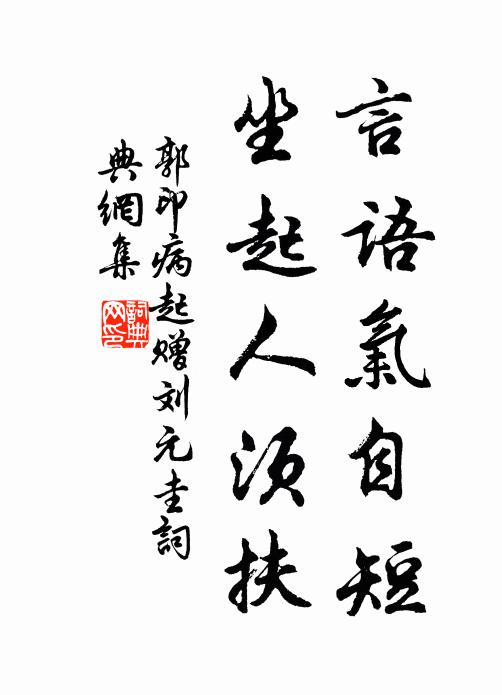 言語氣自短
坐起人須扶
郭印病起赠刘元圭詞
典網集
詞典
网印